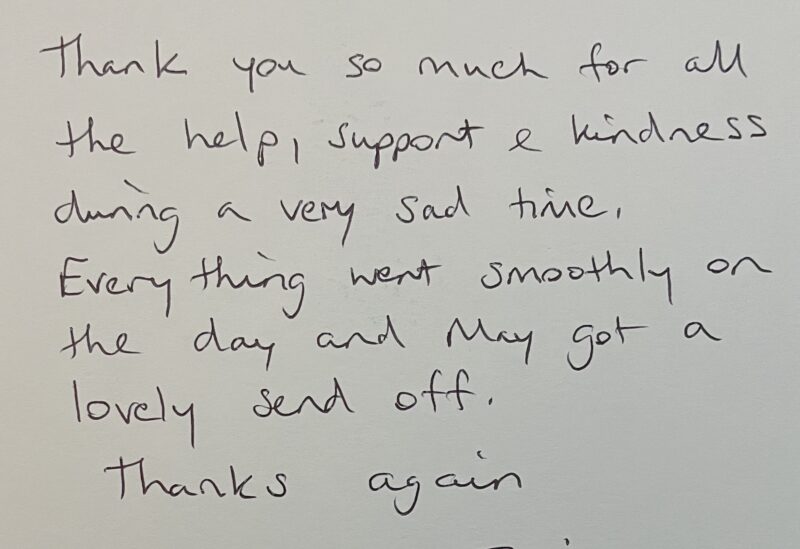 Thank you so much for all
the help, support & kindness
during a very sad time.
Everything went smoothly on
the day and May got a
lovely send off.
Thanks again